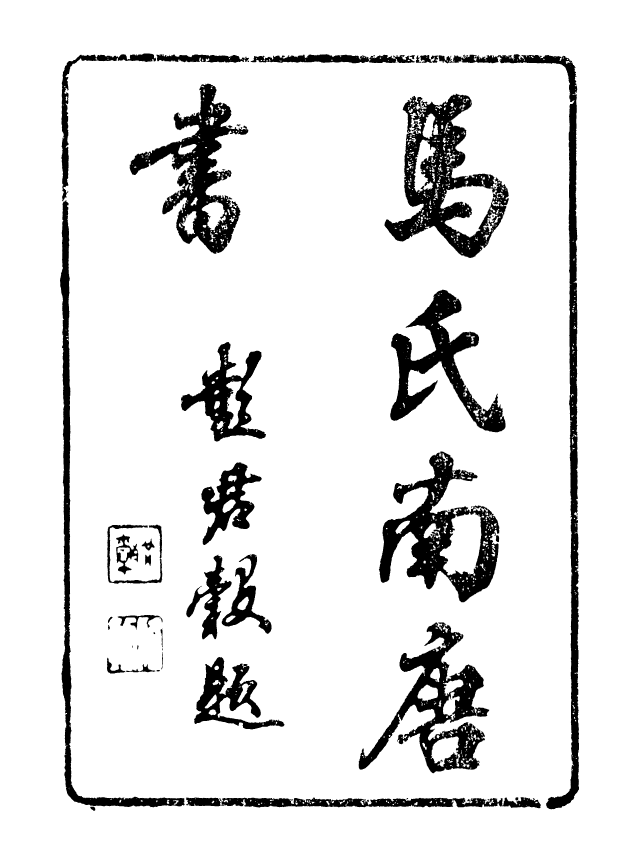 馬氏南唐
書
彭君穀題